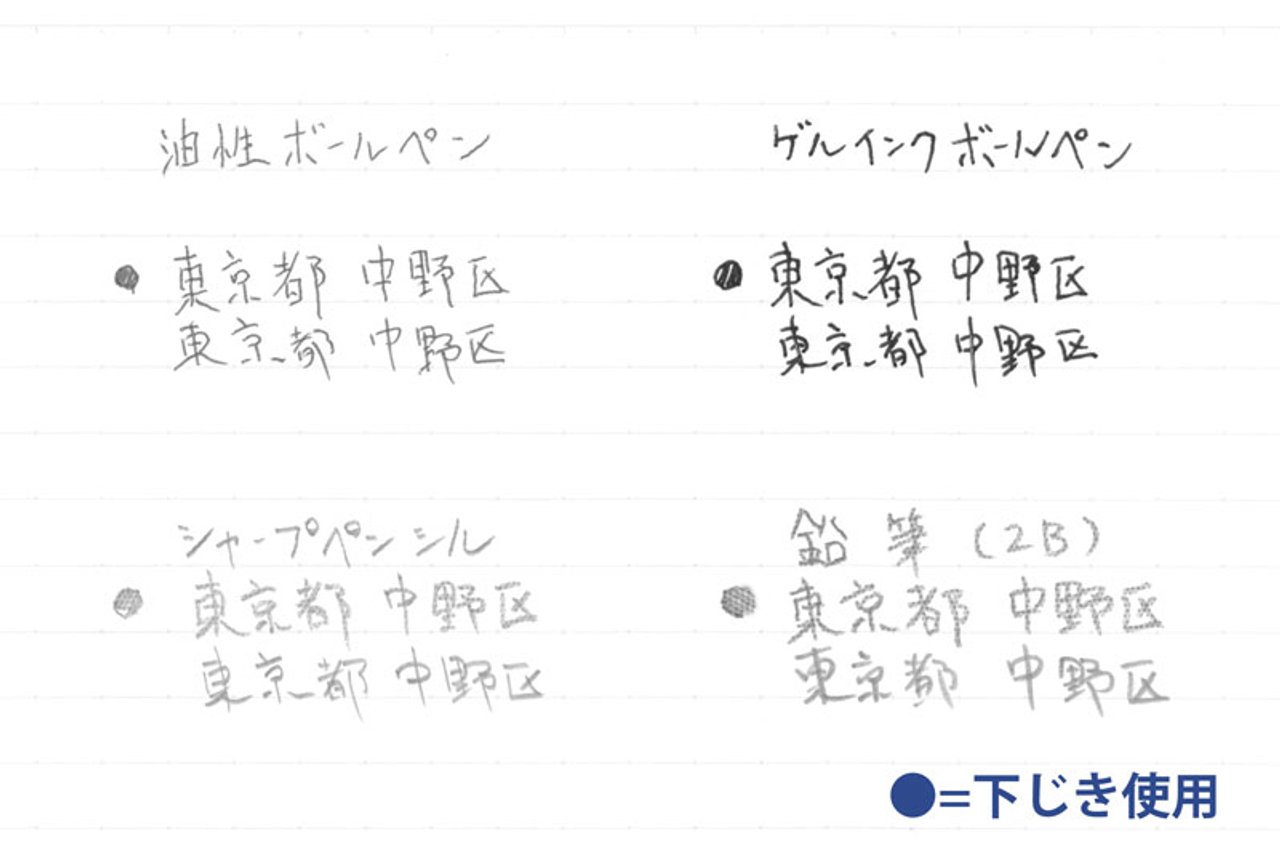 油性ボールペン
● 東京都 中野区
東京都 中野区
ゲルインクボールペン
● 東京都 中野区
東京都 中野区
シャープペンシル
● 東京都 中野区
東京都 中野区
鉛筆(2B)
● 東京都 中野区
東京都 中野区
●=下じき使用